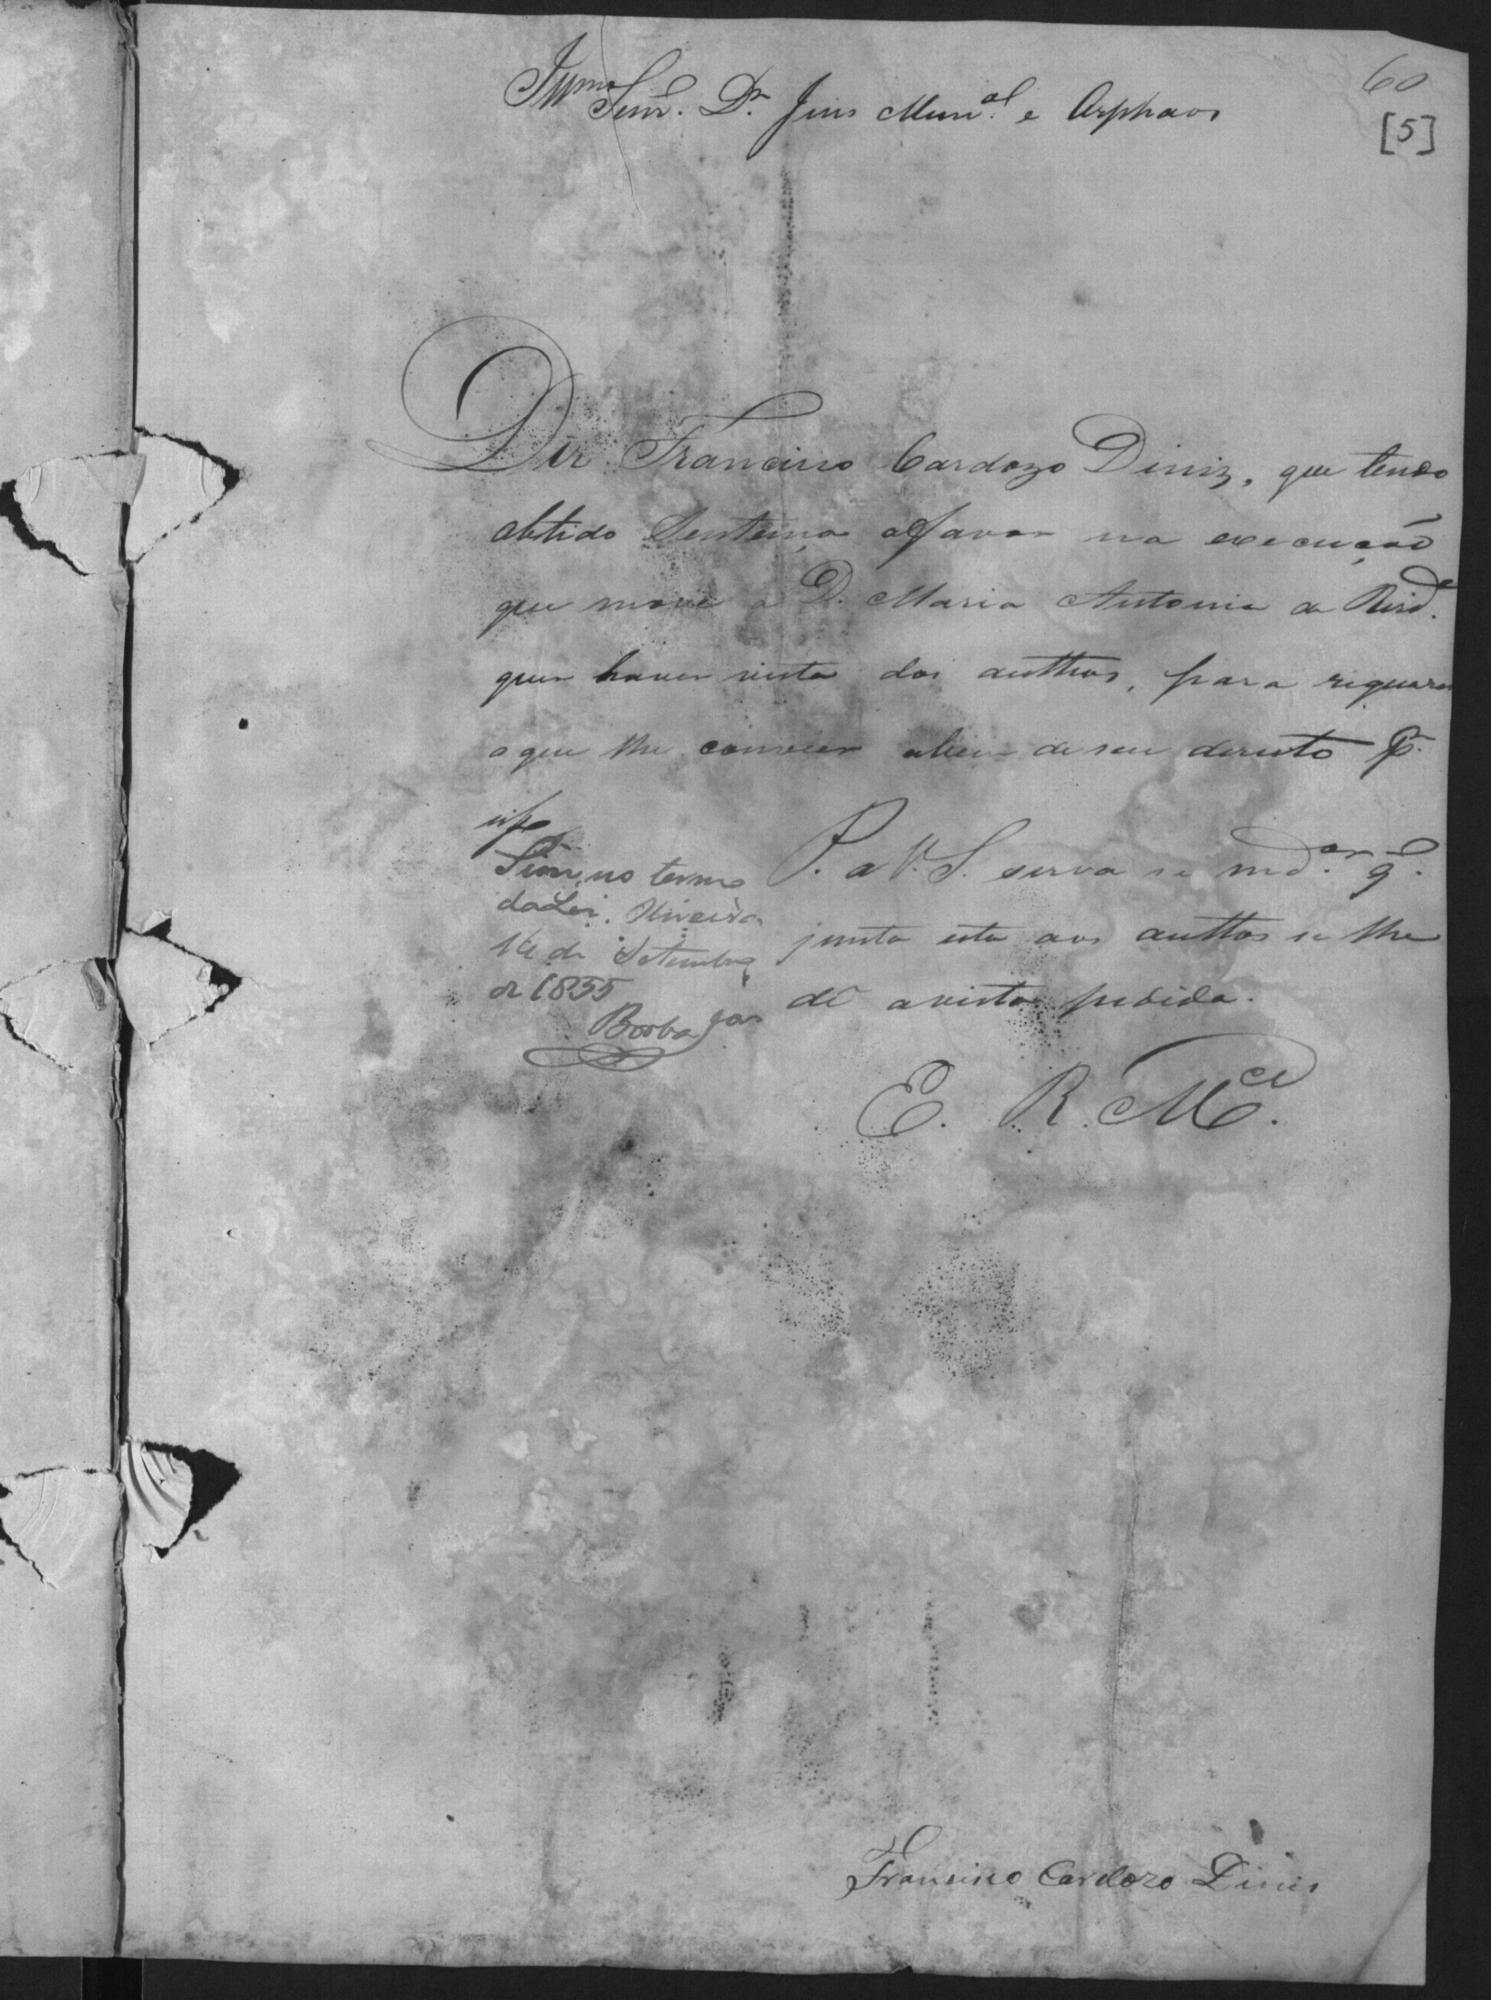 60
[5]
Illmo Senr. Dr. Juis Munal. e Orphaos
Diz Francisco Cardozo Diniz, que tendo
obtido Sentença afavor na execução
que move a D. Maria Antonia da
quer haver vista dos authos, para requerer
o que lhe convier abem de seu dereito Pr.
isso
P. a V. S. serva se mdar. qe.
junta esta aos auttos se lhe
dê a vista pedida.
E. R. Mce.
Sim, no termo
da Lei. Oliveira
de Setembro
de 1855
Borba
Francisco Cardozo Dinis